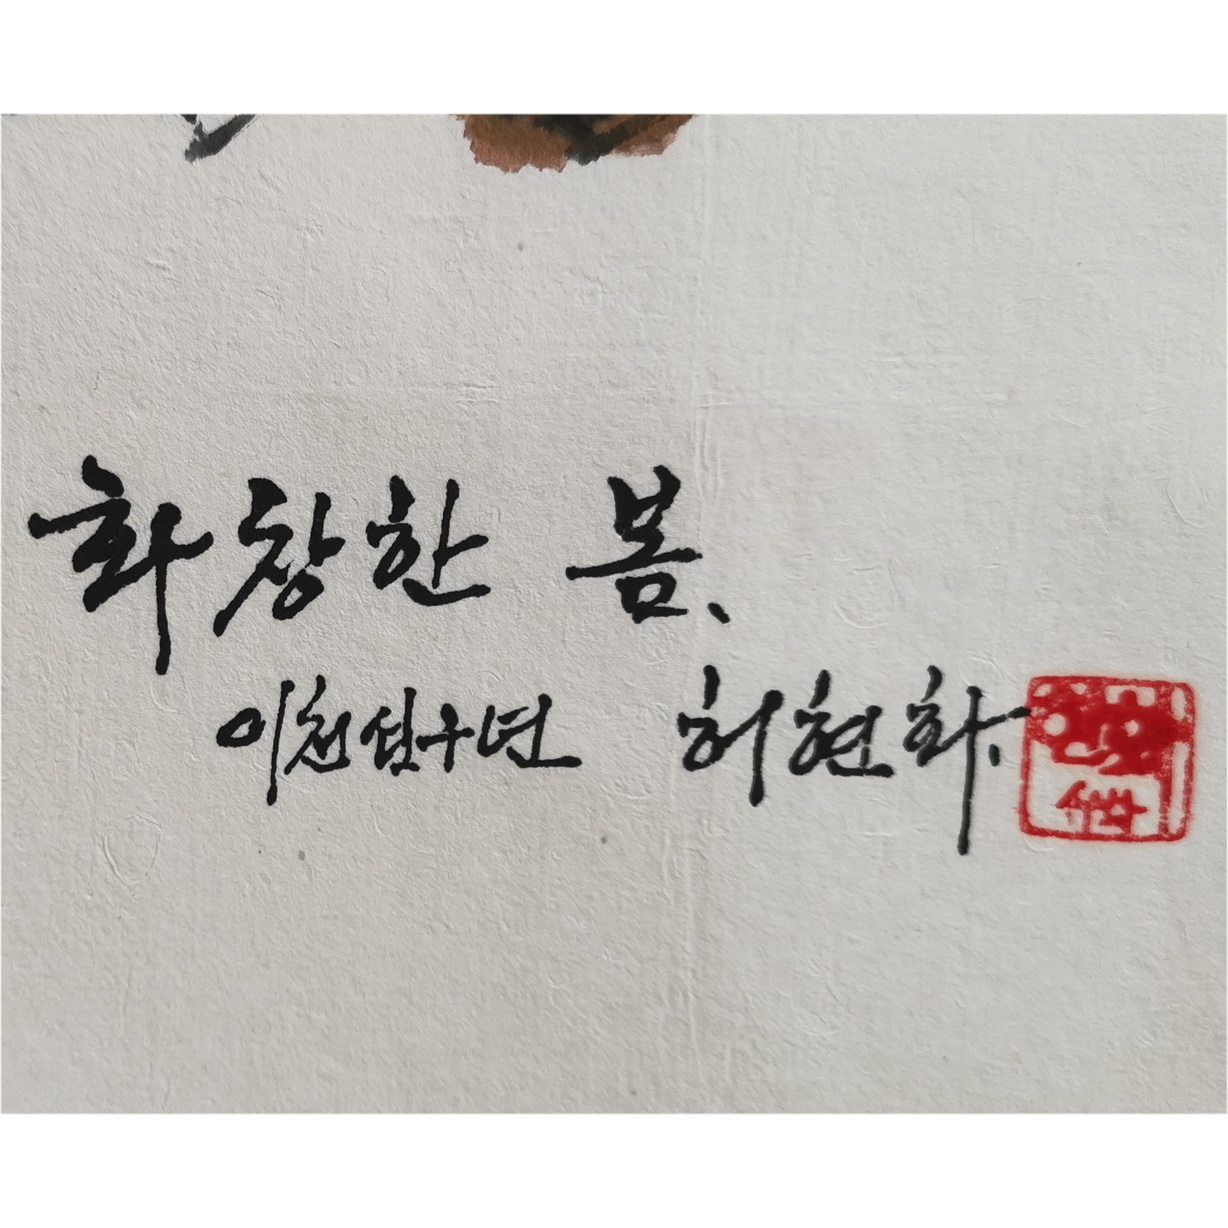 화창한 봄.
이천십구년 허현화.